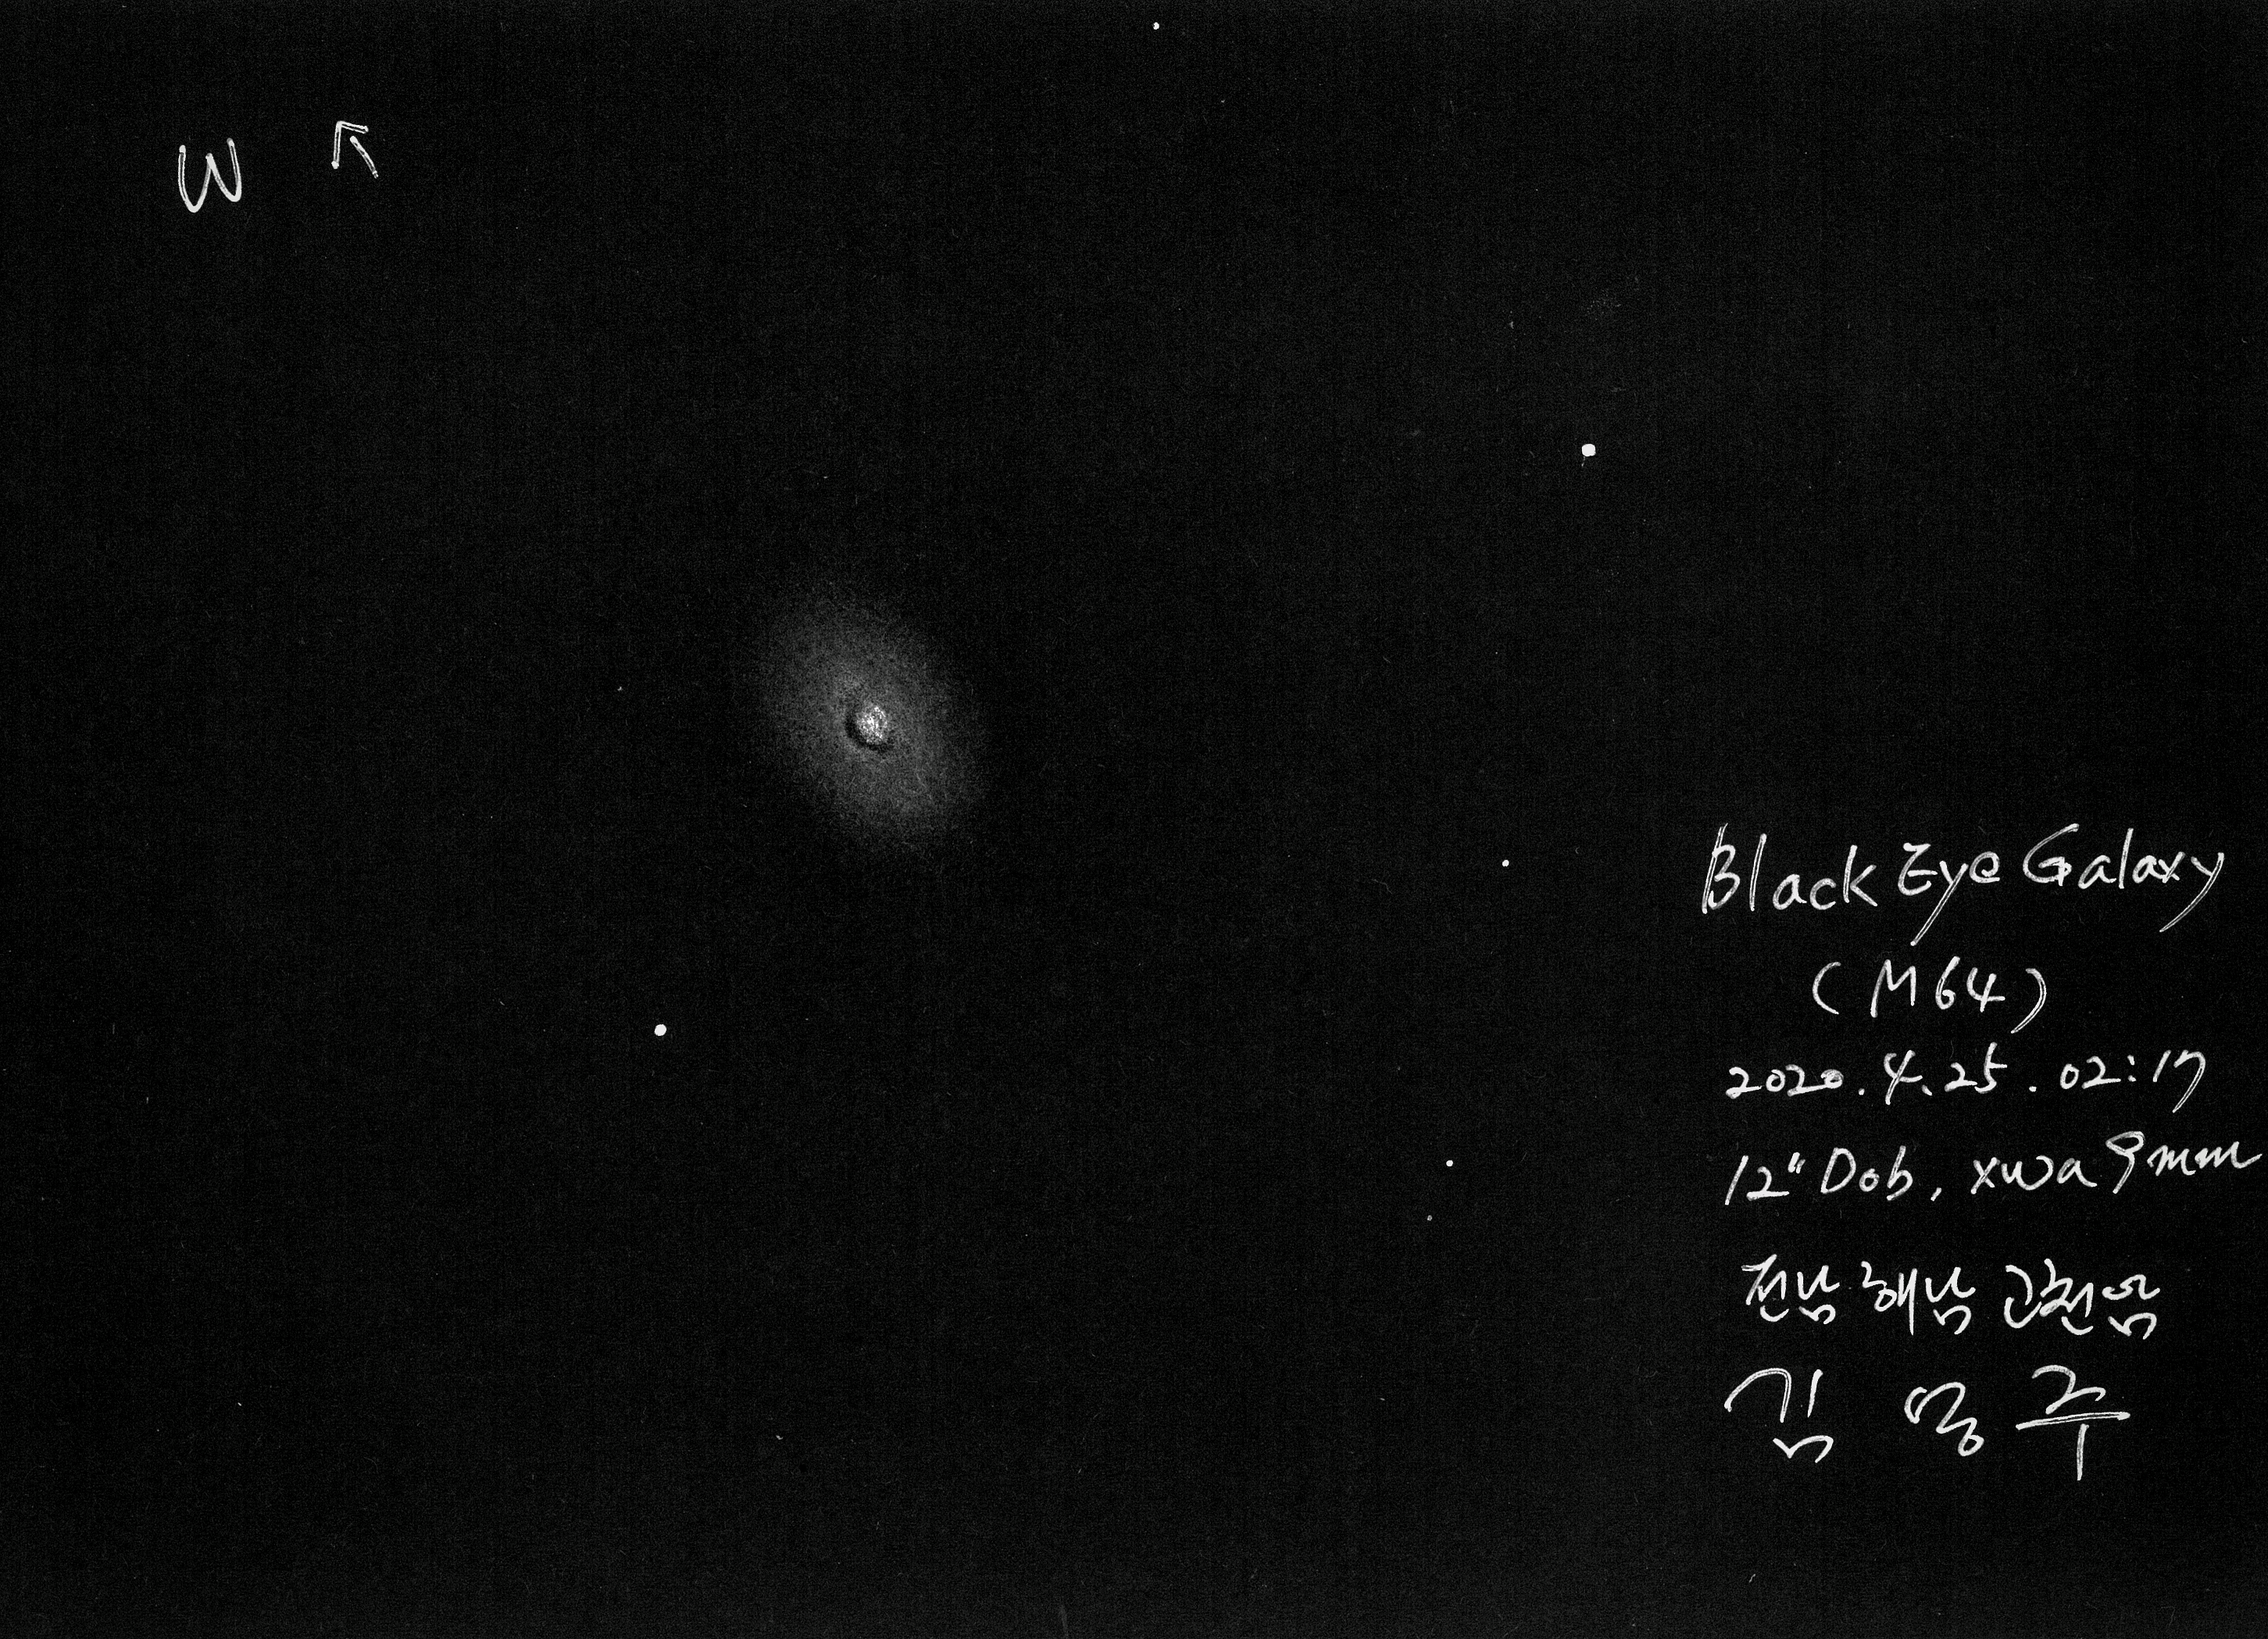 W
Black Eye Galaxy
(M64)
2020.4.25.02:17
12" Dob, xwa 9mm
전남 해남 고천암
김 영 주